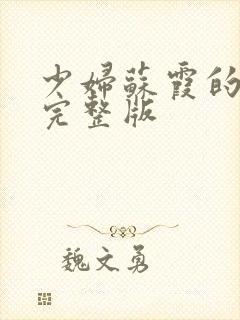 少婦蘇霞的
完整版
魏文勇